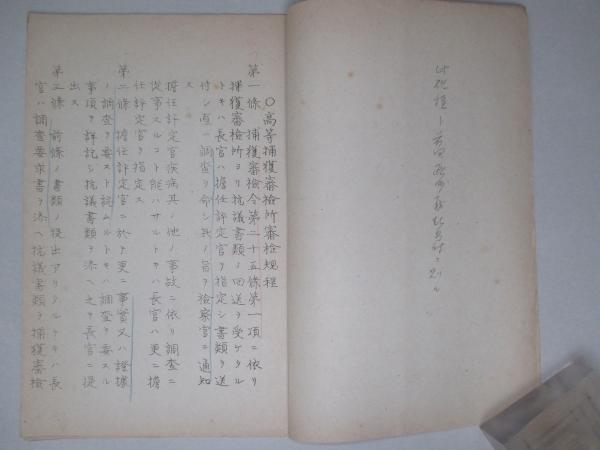 〇高等捕獲審檢所審檢規程
第一條 捕獲審檢令第二十五條第一項ニ依リ
捕獲審檢所ヨリ抗議書類ノ回送ヲ受ケタル
トキハ長官ハ擔任評定官ヲ指定シ書類ヲ送
付シ直ニ調査ヲ命シ其ノ旨ヲ檢察官ニ通知
ス
擔任評定官疾病其ノ他ノ事故ニ依リ調査ニ
從事スルコト能ハサルトキハ長官ハ更ニ擔
任評定官ヲ指定ス
第二條 擔任評定官ニ於テ更ニ事實又ハ證據
ノ調査ヲ要スト認ムルトキハ調査ヲ要スル
事項ヲ詳記シ抗議書類ヲ添ヘ之ヲ長官ニ提
出ス
第三條 前條ノ書類ノ提出アリタルトキハ長
官ハ調査要求書ヲ添ヘ抗議書類ヲ捕獲審檢